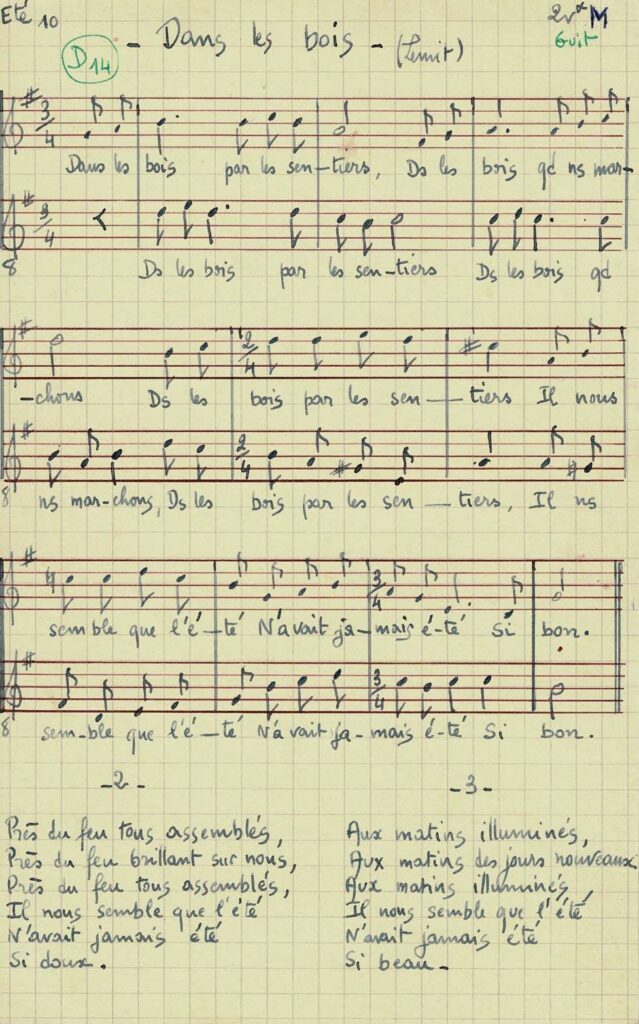 Eté 10
2vx M
Guit
D14
- Dans les bois - (Lemit)
3/4
Dans les bois par les sen-tiers, Ds les bois qd ns mar-
3/4
8
Ds les bois par les sen-tiers Ds les bois qd
2/4
-chons Ds les bois par les sen-tiers Il nous
2/4
8
ns mar-chons, Ds les bois par les sen-tiers, Il ns
3/4
semble que l'é-té N'avait ja-mais é-té Si bon.
3/4
8
sem-ble que l'é-té N'a vait ja-mais é-té Si bon.
-2-
Près du feu tous assemblés,
Près du feu brillant sur nous,
Près du feu tous assemblés,
Il nous semble que l'été
N'avait jamais été
Si doux.
-3-
Aux matins illuminés,
Aux matins des jours nouveaux
Aux matins illuminés,
Il nous semble que l'été
N'avait jamais été
Si beau-